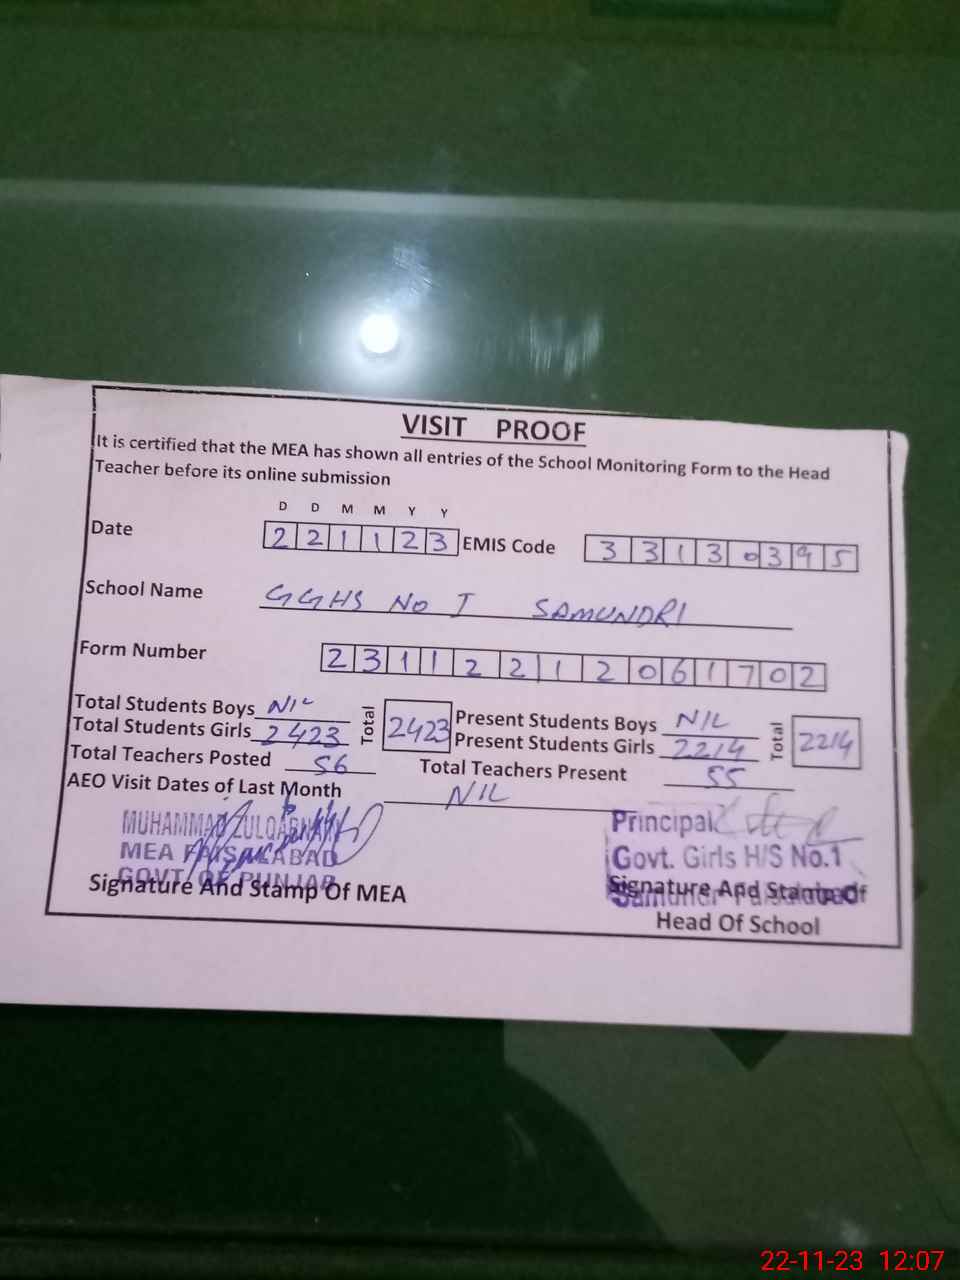 VISIT PROOF
It is certified that the MEA has shown all entries of the School Monitoring Form to the Head
Teacher before its online submission
D D M M Y Y
Date 2 2 1 1 2 3 EMIS Code 3 3 1 3 0 3 9 5
School Name GGHS No I SAMUNDRI
Form Number 2 3 1 1 2 2 1 2 0 6 1 7 0 2
Total Students Boys NIL Total 2423 Present Students Boys NIL Total 2214
Total Students Girls 2423 Present Students Girls 2214
Total Teachers Posted 56 Total Teachers Present 55
AEO Visit Dates of Last Month NIL
MUHAMMAD ZULQARNAIN Principal
MEA FAISALABAD Govt. Girls H/S No.1
GOVT. OF PUNJAB
Signature And Stamp Of MEA Signature And Stamp Of
Head Of School
22-11-23 12:07